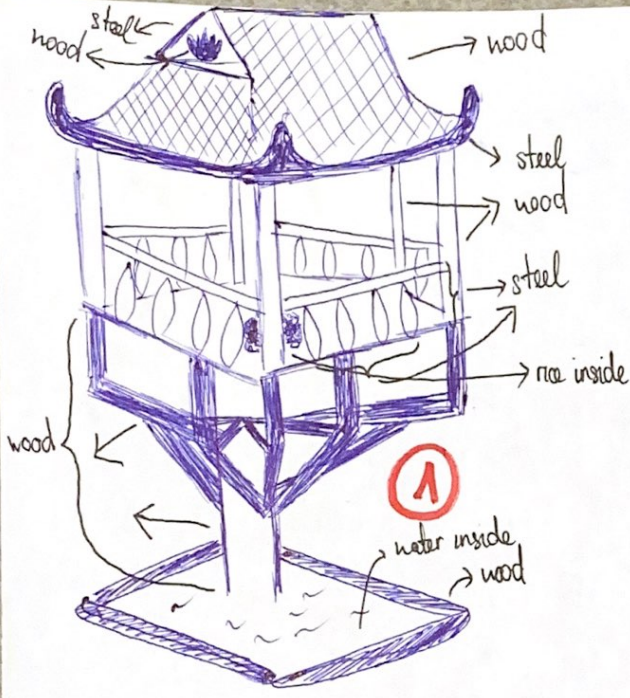 steel
wood
wood
steel
wood
steel
rice inside
wood
1
water inside
wood